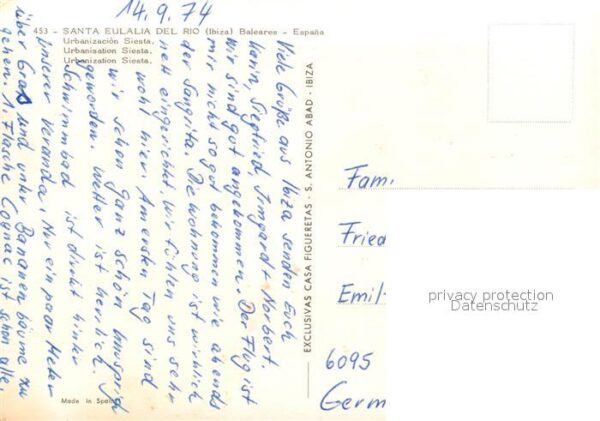 14.9.74
453 - SANTA EULALIA DEL RIO (Ibiza) Baleares - España
Urbanización Siesta.
Urbanisation Siesta.
Urbanization Siesta.
Viele Grüße aus Ibiza senden Euch
Karin, Siegfried, Irmgard + Norbert.
Wir sind gut angekommen. Der Flug ist
mir nicht so gut bekommen wie abends
der Sangrita. Die Wohnung ist wirklich
nett eingerichtet. Wir fühlen uns sehr
wohl hier. Am ersten Tag sind
wir schon ganz schön
geworden. Wetter ist herrlich.
Schwimmbad ist direkt hinter
unserer Veranda. Nur ein paar Meter
über Gras und unter Bananenbäume zu
gehen. 1. Flasche Cognac ist schon alle.
EXCLUSIVAS CASA FIGUERETAS - S. ANTONIO ABAD - IBIZA
Made in Spain
Fam.
Fried
Emil-
6095
Germ
privacy protection
Datenschutz